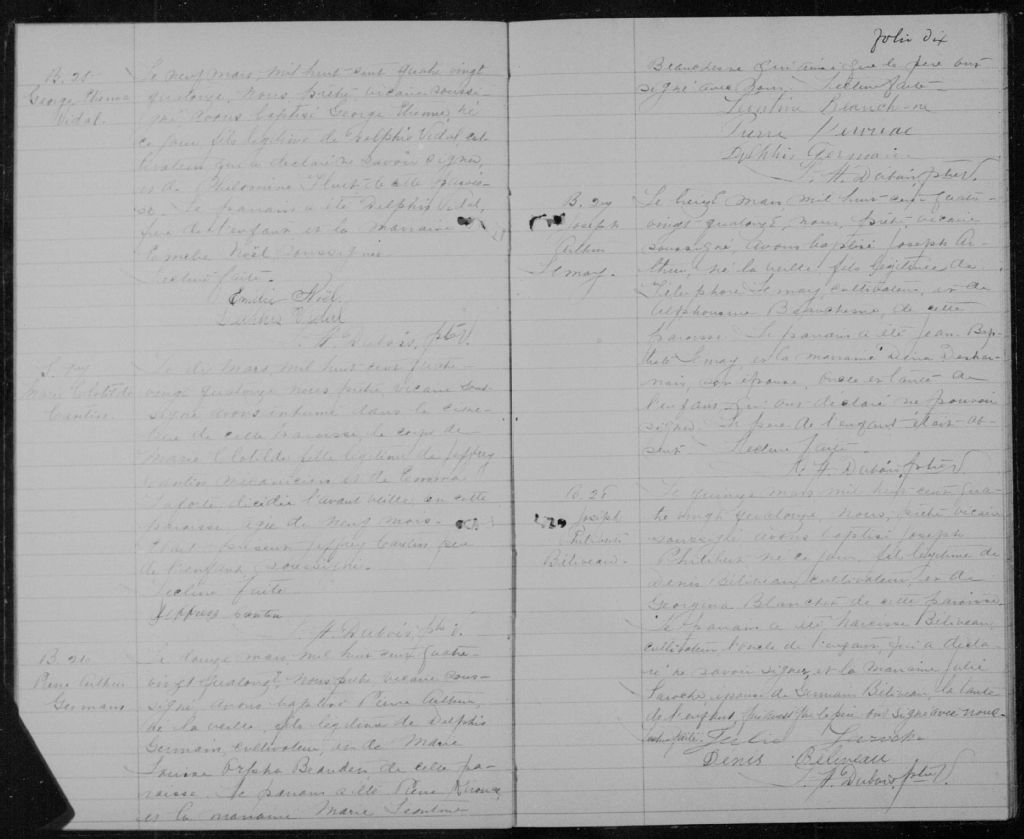 B. 25
George Etienne
Vidal.
Le neuf mars, mil huit cent quatre vingt
quatorze, nous prêtre, vicaire soussi-
gné avons baptisé George Etienne, né
ce jour, fils légitime de Delphis Vidal, cul
tivateur qui a déclaré ne savoir signer,
et de Philomène de cette parois-
se. Le parrain a été Delphis Vidal,
frère de l'enfant et la marraine
Emélie Noël soussignés
Lecture faite.
Emélie Noël
Delphis Vidal
A. Dubois, ptre V.
S. 
Marie Clotilde
Cantin
Le dix mars, mil huit cent quatre
vingt quatorze nous prêtre, vicaire sous-
signé avons inhumé dans le cime-
tière de cette paroisse, le corps de
Marie Clotilde fille légitime de Jeffrey
Cantin mécanicien et de Emma
Laforte, décédée l'avant veille, en cette
paroisse agée de neuf mois.
Etait présent Jeffrey Cantin père
de l'enfant, soussigné.
Lecture faite.
Jeffrey Cantin
A. Dubois, ptre V.
B. 26
Pierre Arthur
Germain
Le douze mars, mil huit cent quatre-
vingt quatorze, nous prêtre vicaire sous-
signé, avons baptisé Pierre Arthur,
né la veille, fils légitime de Delphis
Germain, cultivateur, et de Marie
Louise Orpha Beaudet de cette pa-
roisse. Le parrain a été Pierre
et la marraine Marie Léontine
folio dix
Beauchesne qui ainsi que le père ont
signé avec nous. Lecture faite.
Léontine Beauchesne
Pierre
Delphis Germain
A. Dubois, ptre V.
B. 27
Joseph
Arthur
Lemay.
Le treize mars mil huit cent quatre-
vingt quatorze, nous, prêtre, vicaire
soussigné, avons baptisé Joseph Ar-
thur, né la veille, fils légitime de
Télesphore Lemay, cultivateur, et de
Alphonsine Beauchesne, de cette
paroisse. Le parrain a été Jean Bap-
tiste Lemay, et la marraine Deshar-
nais, son épouse, oncle et tante de
l'enfant qui ont déclaré ne pouvoir
signer. Le père de l'enfant était ab-
sent. Lecture faite.
A. Dubois, ptre V.
B. 28
Joseph
Philibert
Béliveau.
Le quinze mars mil huit cent qua-
tre vingt quatorze, nous, prêtre vicaire
soussigné avons baptisé Joseph
Philibert né ce jour, fils légitime de
Denis Béliveau, cultivateur, et de
Georgina Blanchet de cette paroisse.
Le parrain a été Narcisse Béliveau,
cultivateur, oncle de l'enfant, qui a décla-
ré ne savoir signer, et la marraine Julie
Laroche, épouse de Germain Béliveau, la tante
de l'enfant, qui aussi que le père ont signé avec nous.
Lecture faite. Julie Laroche
Denis Béliveau
A. Dubois, ptre V.